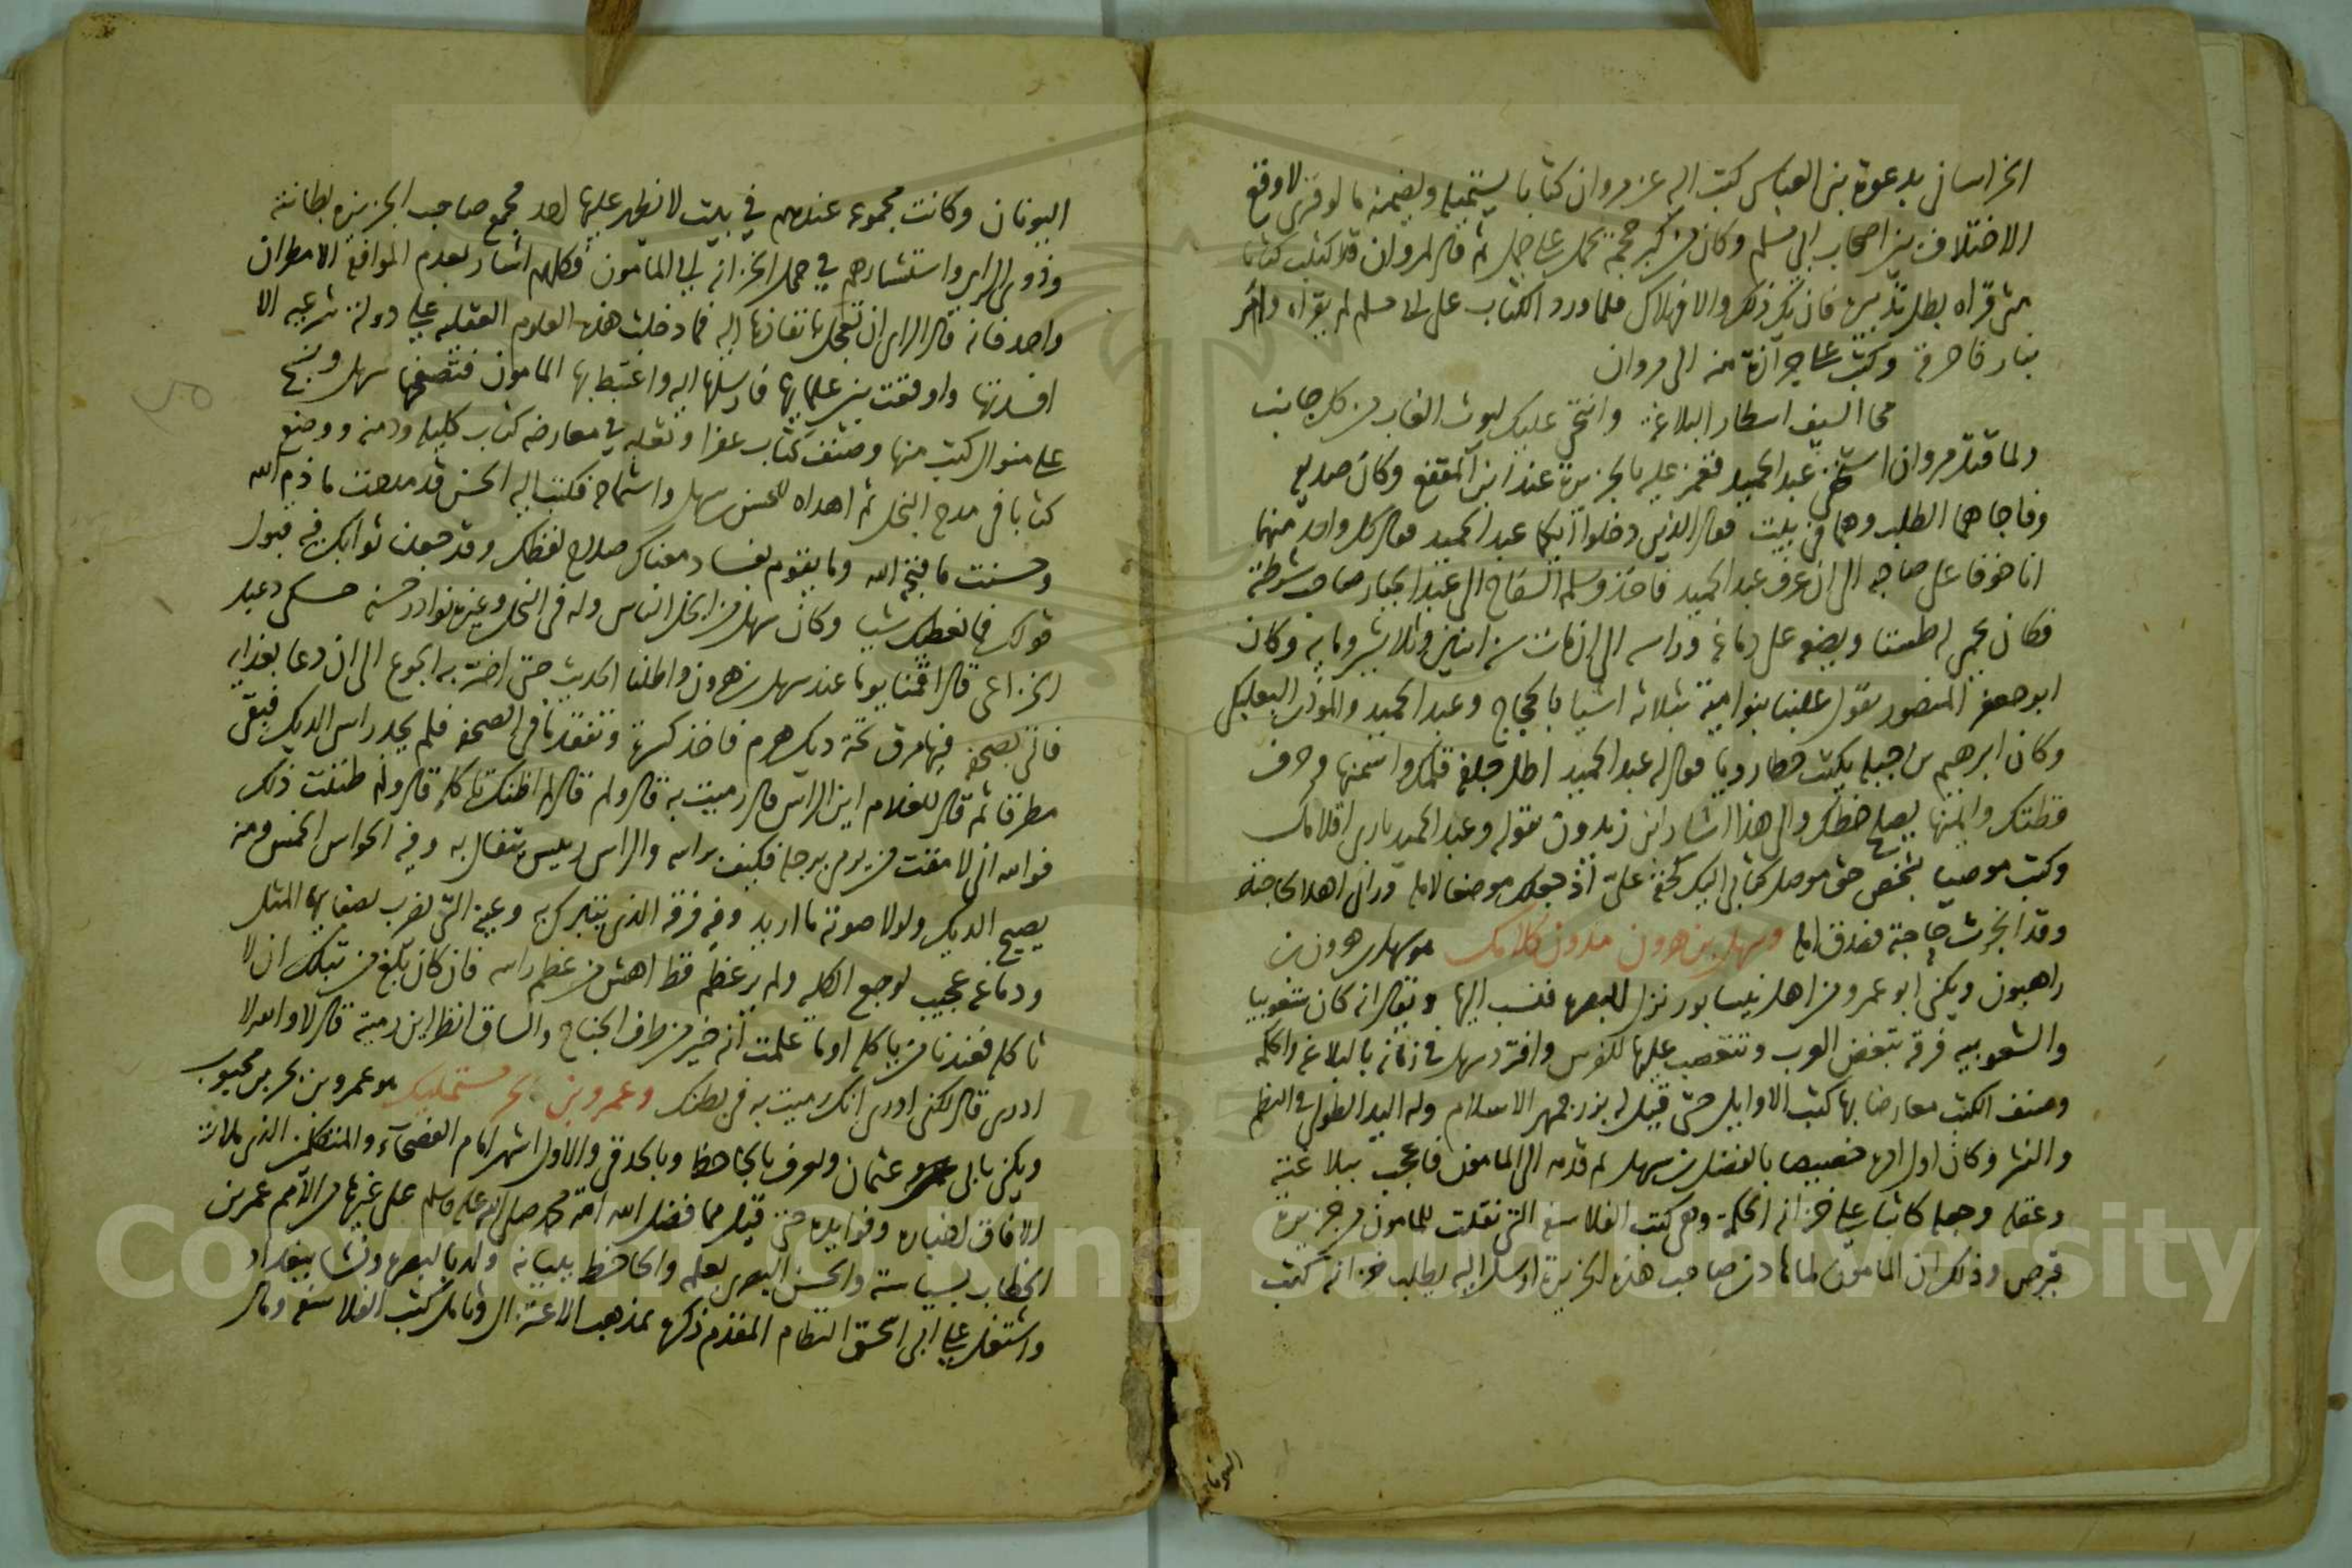 الخراساني بدعوة بني العباس كتب اليه عن مروان كتابا يستميله ويضمنه ما لو قري لاوقع
الاختلاف بين اصحاب ابي مسلم وكان من كبر حجمه يحمل على جمل ثم قال لمروان قد كتبت كتابا
متى قراه بطل تدبيره فان يك ذلك والا فهلاك فلما ورد الكتاب على ابي مسلم لم يقراه وامر
بنار فاحرقه وكتب على جزازة منه الى مروان
محا السيف اسطار البلاغة وانتحى عليك ليوث الغاب من كل جانب
ولما قتل مروان استخفى عبد الحميد فغمز عليه بالجزيرة عند ابن المقفع وكان صديقه
وفاجاهما الطلب وهما في بيت فقال الذين دخلوا ايكما عبد الحميد فقال كل واحد منهما
انا خوفا على صاحبه الى ان عرف عبد الحميد فاخذ وسلمه السفاح الى عبد الجبار صاحب شرطته
فكان يحمي له طستا ويضعه على دماغه وراسه الى ان مات سنة اثنين وثلاثين وماية وكان
ابو جعفر المنصور يقول غلبنا بنو امية بثلاثة اشيا بالحجاج وعبد الحميد والموذن البعلبكي
وكان ابرهيم بن جبلة يكتب خطا رديا فقال له عبد الحميد اطل جلفة قلمك واسمنها وحرف
قطتك وايمنها يصلح خطك والى هذا اشار ابن زيدون بقوله وعبد الحميد بارى اقلامك
وكتب موصيا بشخص حق موصل كتابي اليك كحقه علي اذ جعلك موضعا لامله وراني اهلا لحاجته
وقد انجزت حاجته فصدق امله وسهل بن هرون مدون كلامك هو سهل بن هرون بن
راهبون ويكنى ابو عمرو من اهل نيسابور نزل البصرة فنسب اليها ويقال انه كان شعوبيا
والشعوبية فرقة تبغض العرب وتتعصب عليها للفرس وانفرد سهل في زمانه بالبلاغة والحكمة
وصنف الكتب معارضا بها كتب الاوايل حتى قيل له بزرجمهر الاسلام وله اليد الطولى في النظم
والنثر وكان اول امره خصيصا بالفضل بن سهل ثم قدمه الى المامون فاعجب ببلاغته
وعقله وجعله كاتبا على خزانة الحكمة وهي كتب الفلاسفة التي نقلت للمامون من جزيرة
قبرص وذلك ان المامون لما هادن صاحب هذه الجزيرة ارسل اليه يطلب خزانة كتب
اليونان
اليونان وكانت مجموعة عندهم في بيت لا يظهر عليها احد فجمع صاحب الجزيرة بطانته
وذوي الراي واستشارهم في حمل الخزانة الى المامون فكلهم اشار بعدم الموافقة الا مطران
واحد فانه قال الراي ان تعجل بانفاذها اليه فما دخلت هذه العلوم العقلية على دولة شرعية الا
افسدتها واوقعت بين علمايها فارسلها اليه واغتبط بها المامون فتصفحها سهل ونسج
على منوال كتب منها وصنف كتاب عفرا وثعلة في معارضة كتاب كليلة ودمنة ووضع
كتابا في مدح البخل ثم اهداه للحسن بن سهل واستماحه فكتب اليه الحسن قد مدحت ما ذم الله
وحسنت ما قبح الله وما يقوم بفساد معناك صلاح لفظك وقد جعلنا ثوابك فيه قبول
قولك فما نعطيك شيا وكان سهل من ابخل الناس وله في البخل وغيره نوادر حسنة حكى دعبل
الخزاعي قال اقمنا يوما عند سهل بن هرون واطلنا الحديث حتى اضر به الجوع الى ان دعا بغدايه
فاتي بصحفة فيها مرق تحته ديك هرم فاخذ كسرة وتفقد ما في الصحفة فلم يجد راس الديك فبقى
مطرقا ثم قال للغلام اين الراس قال رميت به قال ولم قال لم اظنك تاكله قال ولم ظننت ذلك
فوالله اني لامقت من يرمي برجله فكيف براسه والراس رييس يتفال به وفيه الحواس الخمس ومنه
يصيح الديك ولولا صوته ما اريد وفيه فرقه الذي يتبرك به وعينه التي يضرب بصفايها المثل
ودماغه عجيب لوجع الكلية ولم ير عظم قط اهش من عظم راسه فان كان بلغ من نبلك ان لا
تاكله فعندنا من ياكله اوما علمت انه خير من طرف الجناح والساق انظر اين رميته قال لا والله لا
ادري قال لكني ادري انك رميت به في بطنك وعمرو بن بحر مستمليك هو عمرو بن بحر بن محبوب
ويكنى بابي عثمان ويعرف بالجاحظ وبالحدقي والاول اشهر امام الفصحآء والمتكلمين الذي ملات
الافاق اخباره وفوايده حتى قيل مما فضل الله امة محمد صلى الله عليه وسلم على غيرها من الامم عمر بن
الخطاب بسياسته والحسن البصري بعلمه والجاحظ ببيانه ولد بالبصرة ونشا ببغداد
واشتغل على ابي اسحق النظام المقدم ذكره بمذهب الاعتزال وتامل كتب الفلاسفة ومال
Copyright © King Saud University